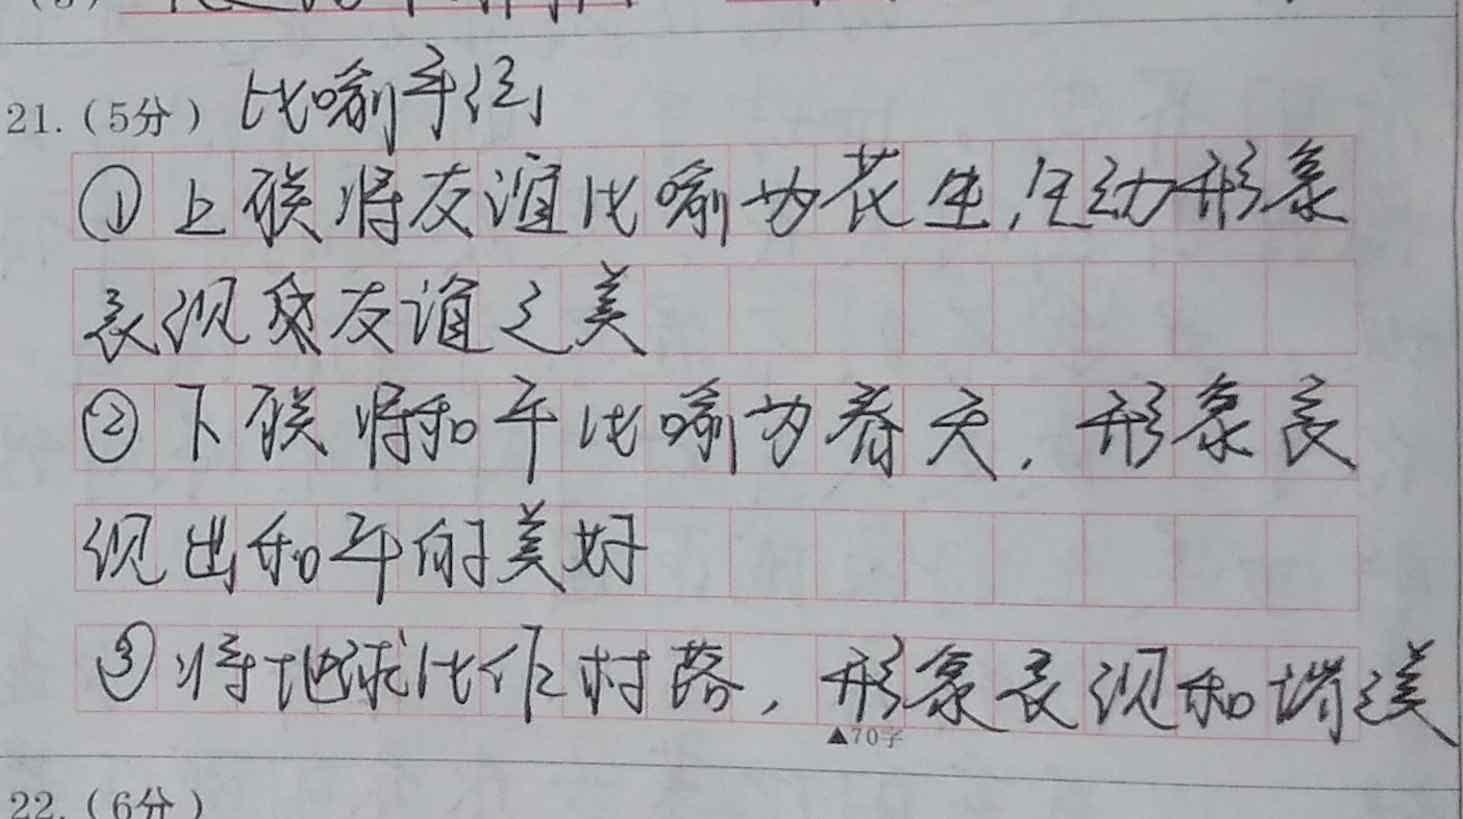 21.（5分）比喻手法
①上联将友谊比喻为花生,生动形象
表现友谊之美
②下联将和平比喻为春天,形象表
现出和平的美好
③将地球比作村落,形象表现和谐之美
▲70字
22.（6分）